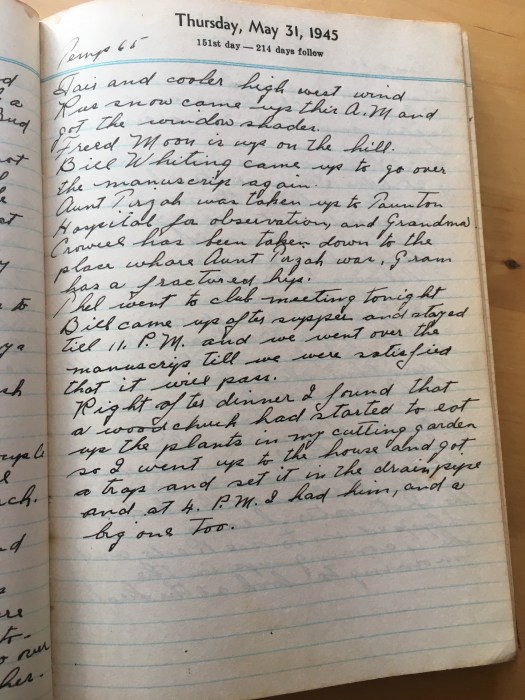 Thursday, May 31, 1945
151st day — 214 days follow
Temp 65
Fair and cooler high west wind
Rus snow came up this A.M and
got the window shades.
Freed Moon is up on the hill.
Bill Whiting came up to go over
the manuscrip again.
Aunt Tirzah was taken up to Taunton
Hospital for observation, and Grandma
Crowell has been taken down to the
place whare Aunt Tirzah was, Gram
has a fractured hip.
Thel went to club meeting tonight
Bill came up after supper and stayed
till 11. P.M. and we went over the
manuscrip till we were satisfied
that it will pass.
Right after dinner I found that
a woodchuck had started to eat
up the plants in my cutting garden
so I went up to the house and got
a trap and set it in the drain pipe
and at 4. P.M. I had him, and a
big one too.